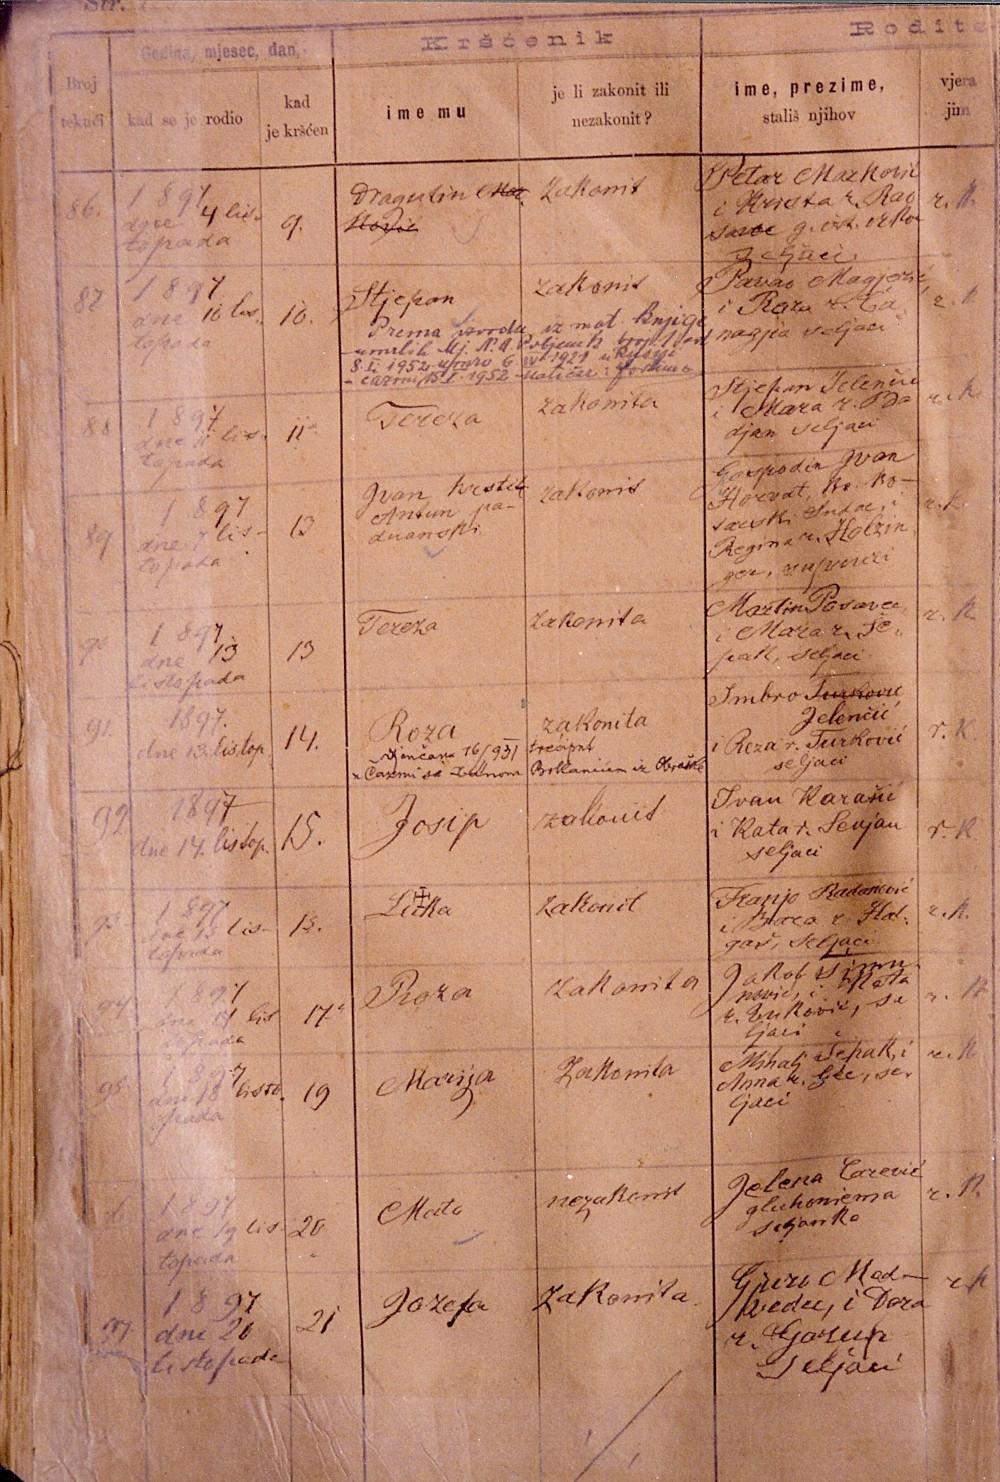 Str.
Kršćenik
Rodite
Broj
tekući
Godina, mjesec, dan,
kad se je rodio
kad
je kršćen
ime mu
je li zakonit ili
nezakonit?
ime, prezime,
stališ njihov
vjera
jim
86.
1897
dne 4 lis-
topada
9.
Dragutin
zakonit
Petar Marković
i Krista r.
seljaci
r. k.
87
1897
dne 10 lis.
topada
10.
Stjepan
Prema izvodu iz mat. knjige
umrlih Mj. N. O.
8. I. 1952 umro 6. IV 1921 u
Čazmi, 15. I. 1952
zakonit
Pavao
i Roza r.
seljaci
r. k.
88
1897
dne 11 lis.
topada
11
Tereza
zakonita
Stjepan Jelenčić
i Mara r. Ba
djan seljaci
r. k.
89
1897
dne 7 lis-
topada
13
Ivan Krstit.
Antun pa-
duanski
zakonit
Gospodin Ivan
Horvat, kr. ko-
tarski sudac, i
Regina r. Holzin
ger, supruzi
r. k.
90
1897
dne 13
listopada
13
Tereza
zakonita
Martin Posavec
i Mara r. Še-
pak, seljaci
r. k.
91.
1897.
dne 13. listop.
14.
Roza
Vjenčana 16/931
u Čazmi sa
zakonita
Imbro Turković
Jelenčić
i Reza r. Turković
seljaci
r. k.
92
1897
dne 14. listop.
15.
Josip
zakonit
Ivan Karašić
i Kata r.
seljaci
r. k.
93
1897
dne 15 lis-
topada
Luka
zakonit
Franjo Radanović
i Bara r.
seljaci
r. k.
94
1897
dne 17 lis
topada
17.
Roza
zakonita
Jakob Šimu
nović, i Kata
r. Vuković, se
ljaci
r. k.
95
1897
dne 18 listo.
pada
19
Marija
Zakonita
Mihalj Šepak, i
Anna r. se-
ljaci
r. k.
96
1897
dne 19 lis-
topada
20
Mato
nezakonit
Jelena Carević
gluhoniema
seljanka
r. k.
97.
1897
dne 20
listopada
21
Jozefa
zakonita
Gjuro Med-
vedec, i Dora
r. Gašup
seljaci
r. k.